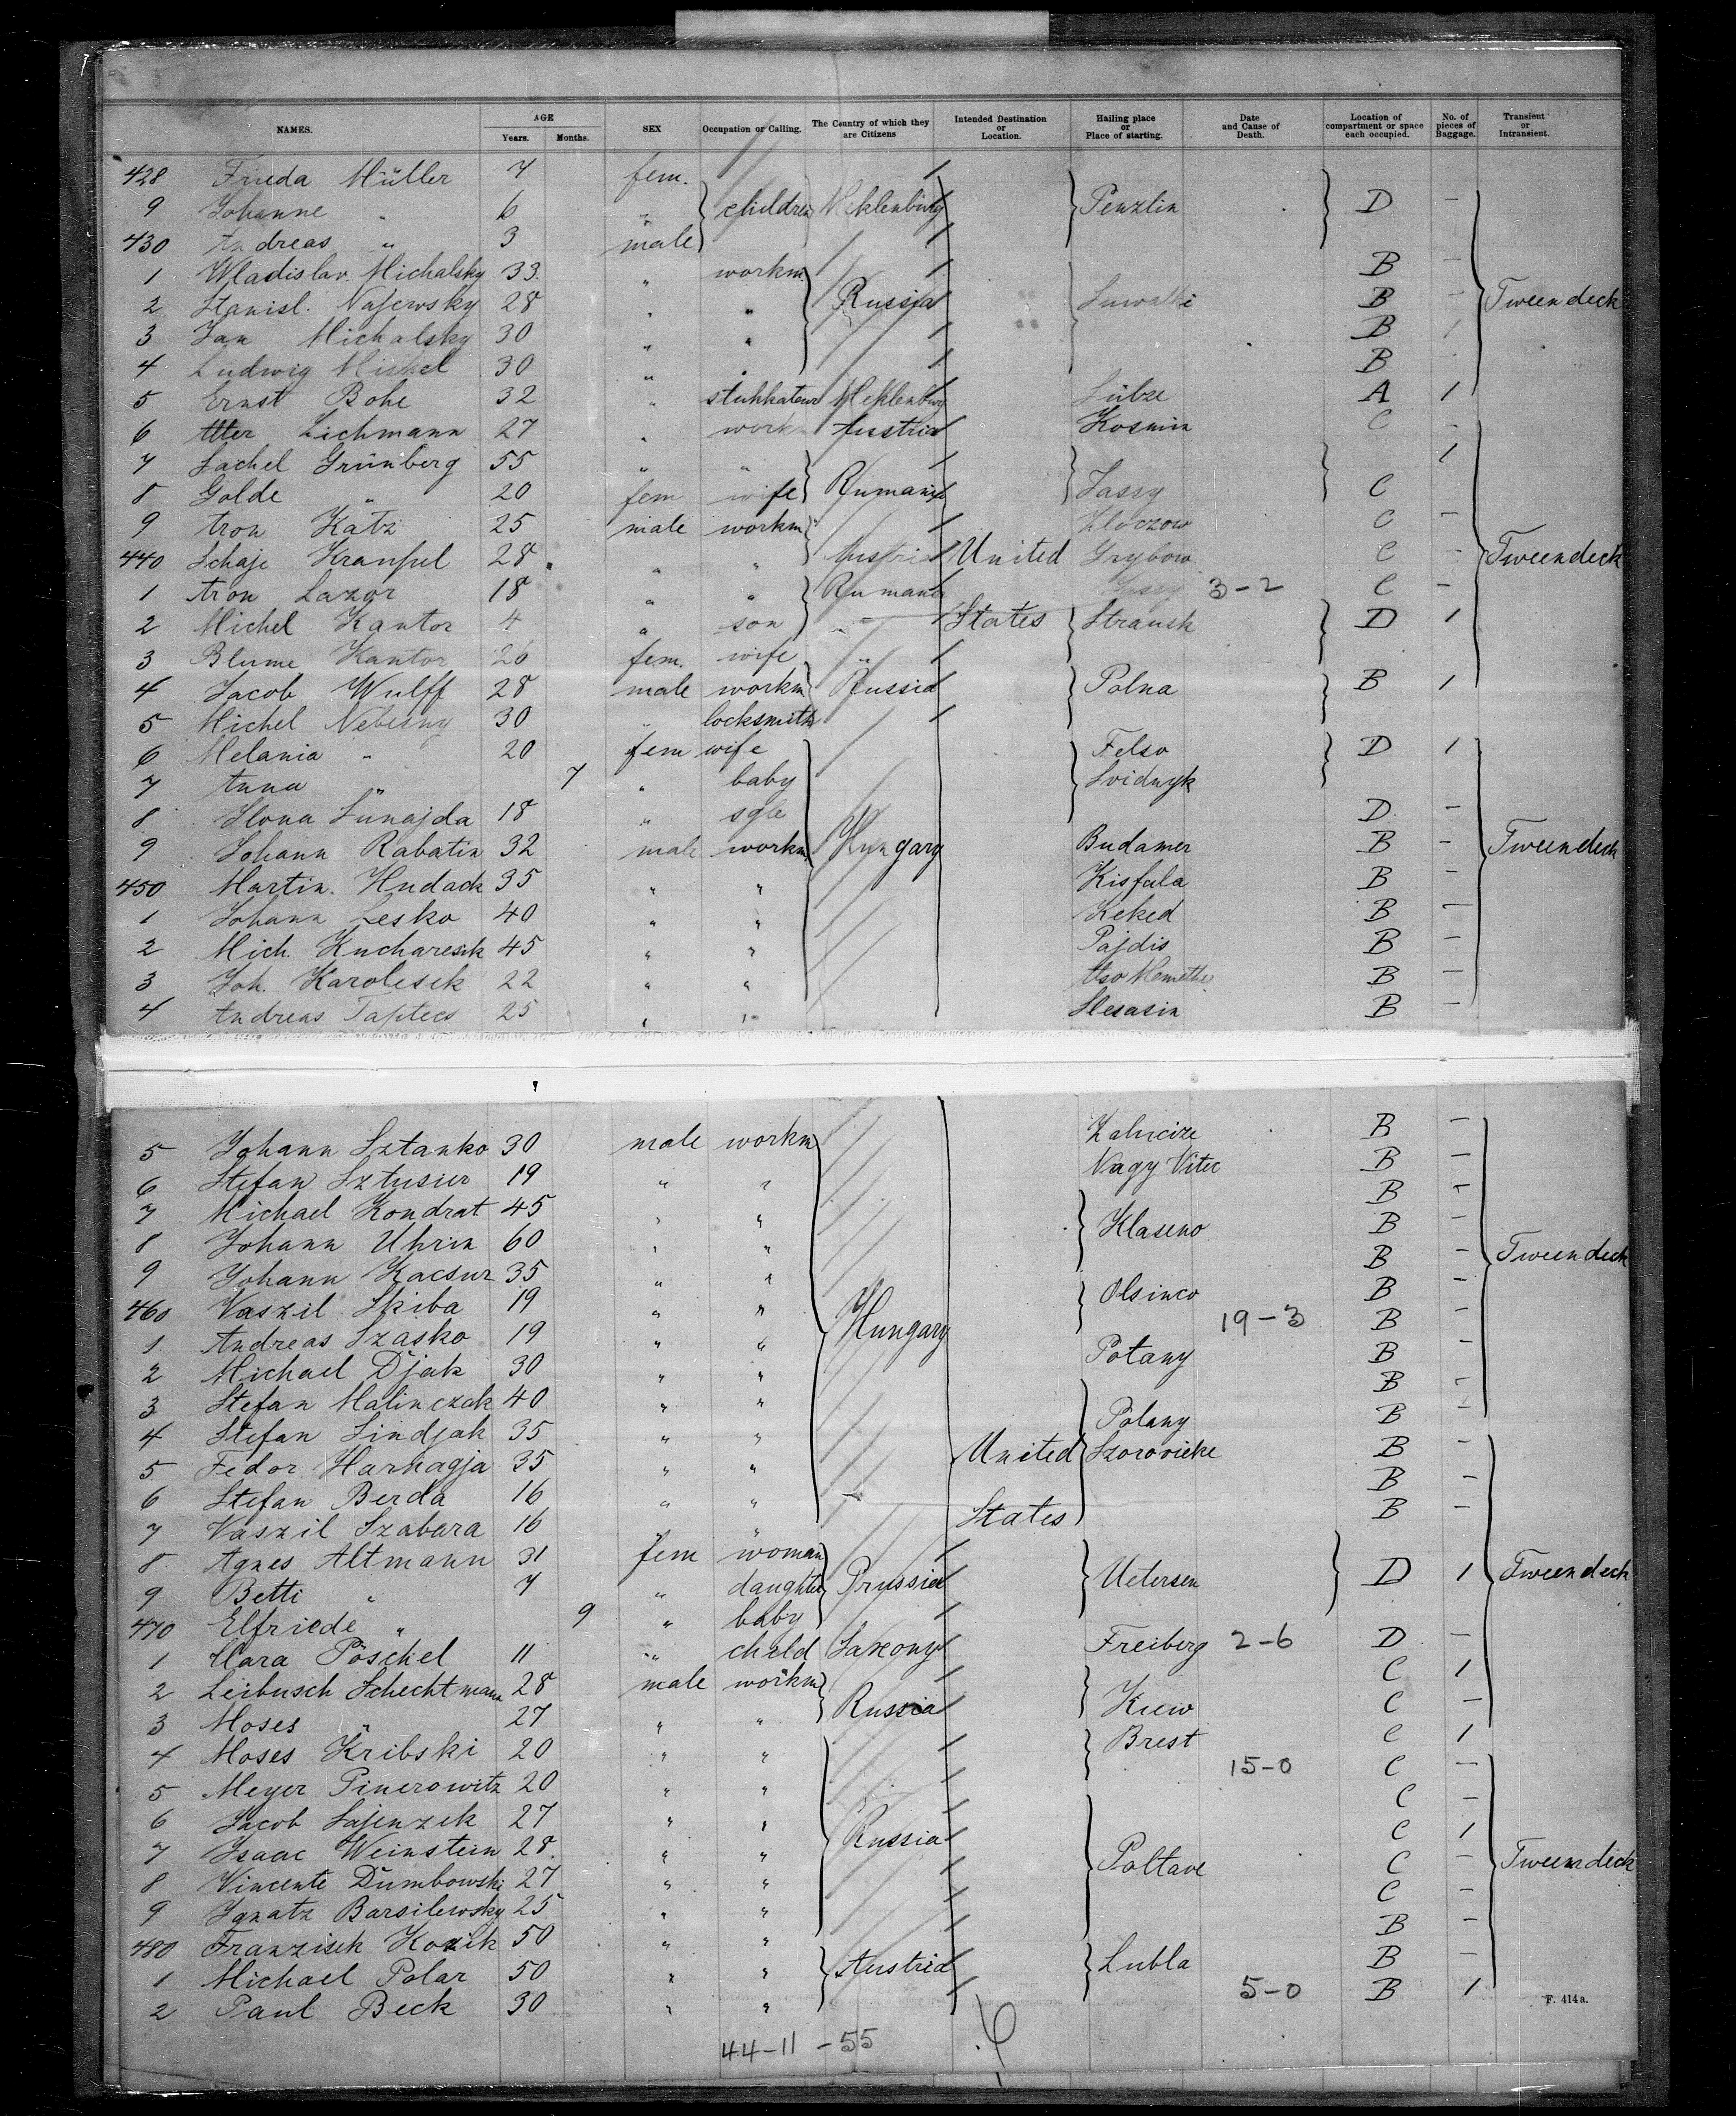 NAMES. AGE Years. Months. SEX Occupation or Calling. The Country of which they are Citizens Intended Destination or Location. Hailing place or Place of starting. Date and Cause of Death. Location of compartment or space each occupied. No. of pieces of Baggage. Transient or Intransient.
428 Frieda Müller 7 fem.
9 Johanne " 6 " children Meklenburg Penzlin D -
430 Andreas " 3 male
1 Wladislav Michalsky 33 " workm B -
2 Stanisl. Najewsky 28 " " Russia Suwalki B - Tween deck
3 Jan Michalsky 30 " " B 1
4 Ludwig Mishel 30 " " B -
5 Ernst Bohe 32 " stukkateur Meklenburg Lübze A 1
6 Etter Zichmann 27 " work Austria Kosmin C -
7 Sachel Grünberg 55 " " 1
8 Golde " 20 fem wife Rumania Jassy C
9 Aron Katz 25 male workm Zloczow C -
440 Schaje Kranful 28 " " Austria United Grybow C - Tween deck
1 Aron Lazar 18 " " Rumania Jassy 3-2 C -
2 Michel Kantor 4 " son " States Stransk D 1
3 Blume Kantor 26 fem. wife "
4 Jacob Wulff 28 male workm Russia Polna B 1
5 Michel Nebesny 30 " locksmith
6 Melania " 20 fem wife Felso D 1
7 Anna " 7 " baby Svidnyk
8 Ilona Lunajda 18 " sgle D -
9 Johann Rabatin 32 male workm Hungary Budamer B - Tween deck
450 Martin. Hudack 35 " " Kisfala B -
1 Johann Lesko 40 " " Keked B -
2 Mich. Kucharesik 45 " " Pajdis B -
3 Joh. Karolesik 22 " " Also Nemethi B -
4 Andreas Taptecs 25 " " Slesasin B -
5 Johann Sztanko 30 male workm Zalucize B -
6 Stefan Sztusier 19 " " Nagy Vitec B -
7 Michael Kondrat 45 " " B -
8 Johann Uhrin 60 " " Klaseno B
9 Johann Kacsur 35 " " B - Tween deck
460 Vaszil Skiba 19 " " Olsinco B -
1. Andreas Szasko 19 " " Hungary 19-3 B -
2 Michael Djak 30 " " Potany B -
3 Stefan Malinczak 40 " " B -
4 Stefan Sindjak 35 " " Polany B -
5 Fedor Harhagja 35 " " United Szorovicke B -
6 Stefan Berda 16 " " B -
7 Vaszil Szabara 16 " " States B -
8 Agnes Altmann 31 fem woman
9 Betti " 7 " daughter Prussia Uetersen D 1 Tween deck
470 Elfriede " 9 " baby
1 Clara Pöschel 11 " child Saxony Freiberg 2-6 D -
2 Leibusch Schechtmann 28 male workm C 1
3 Moses " 27 " " Russia Kiew C -
4 Moses Kribski 20 " " Brest C 1
5 Meyer Pinerowitz 20 " " 15-0 C -
6 Jacob Sajenzek 27 " " C -
7 Isaac Weinstein 28. " " Russia C 1
8 Vincente Dumbowski 27 " " Poltave C - Tween deck
9 Ignatz Barsilewsky 25 " " C -
480 Franzisek Kozik 50 " " B -
1 Michael Polar 50 " " Austria Lubla B -
2 Paul Beck 30 " " 5-0 B 1
F. 414a.
44-11 -55